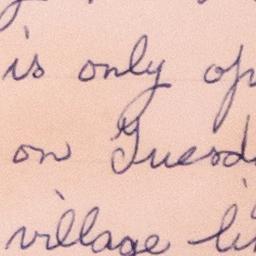 is only op
on Tuesd
village li